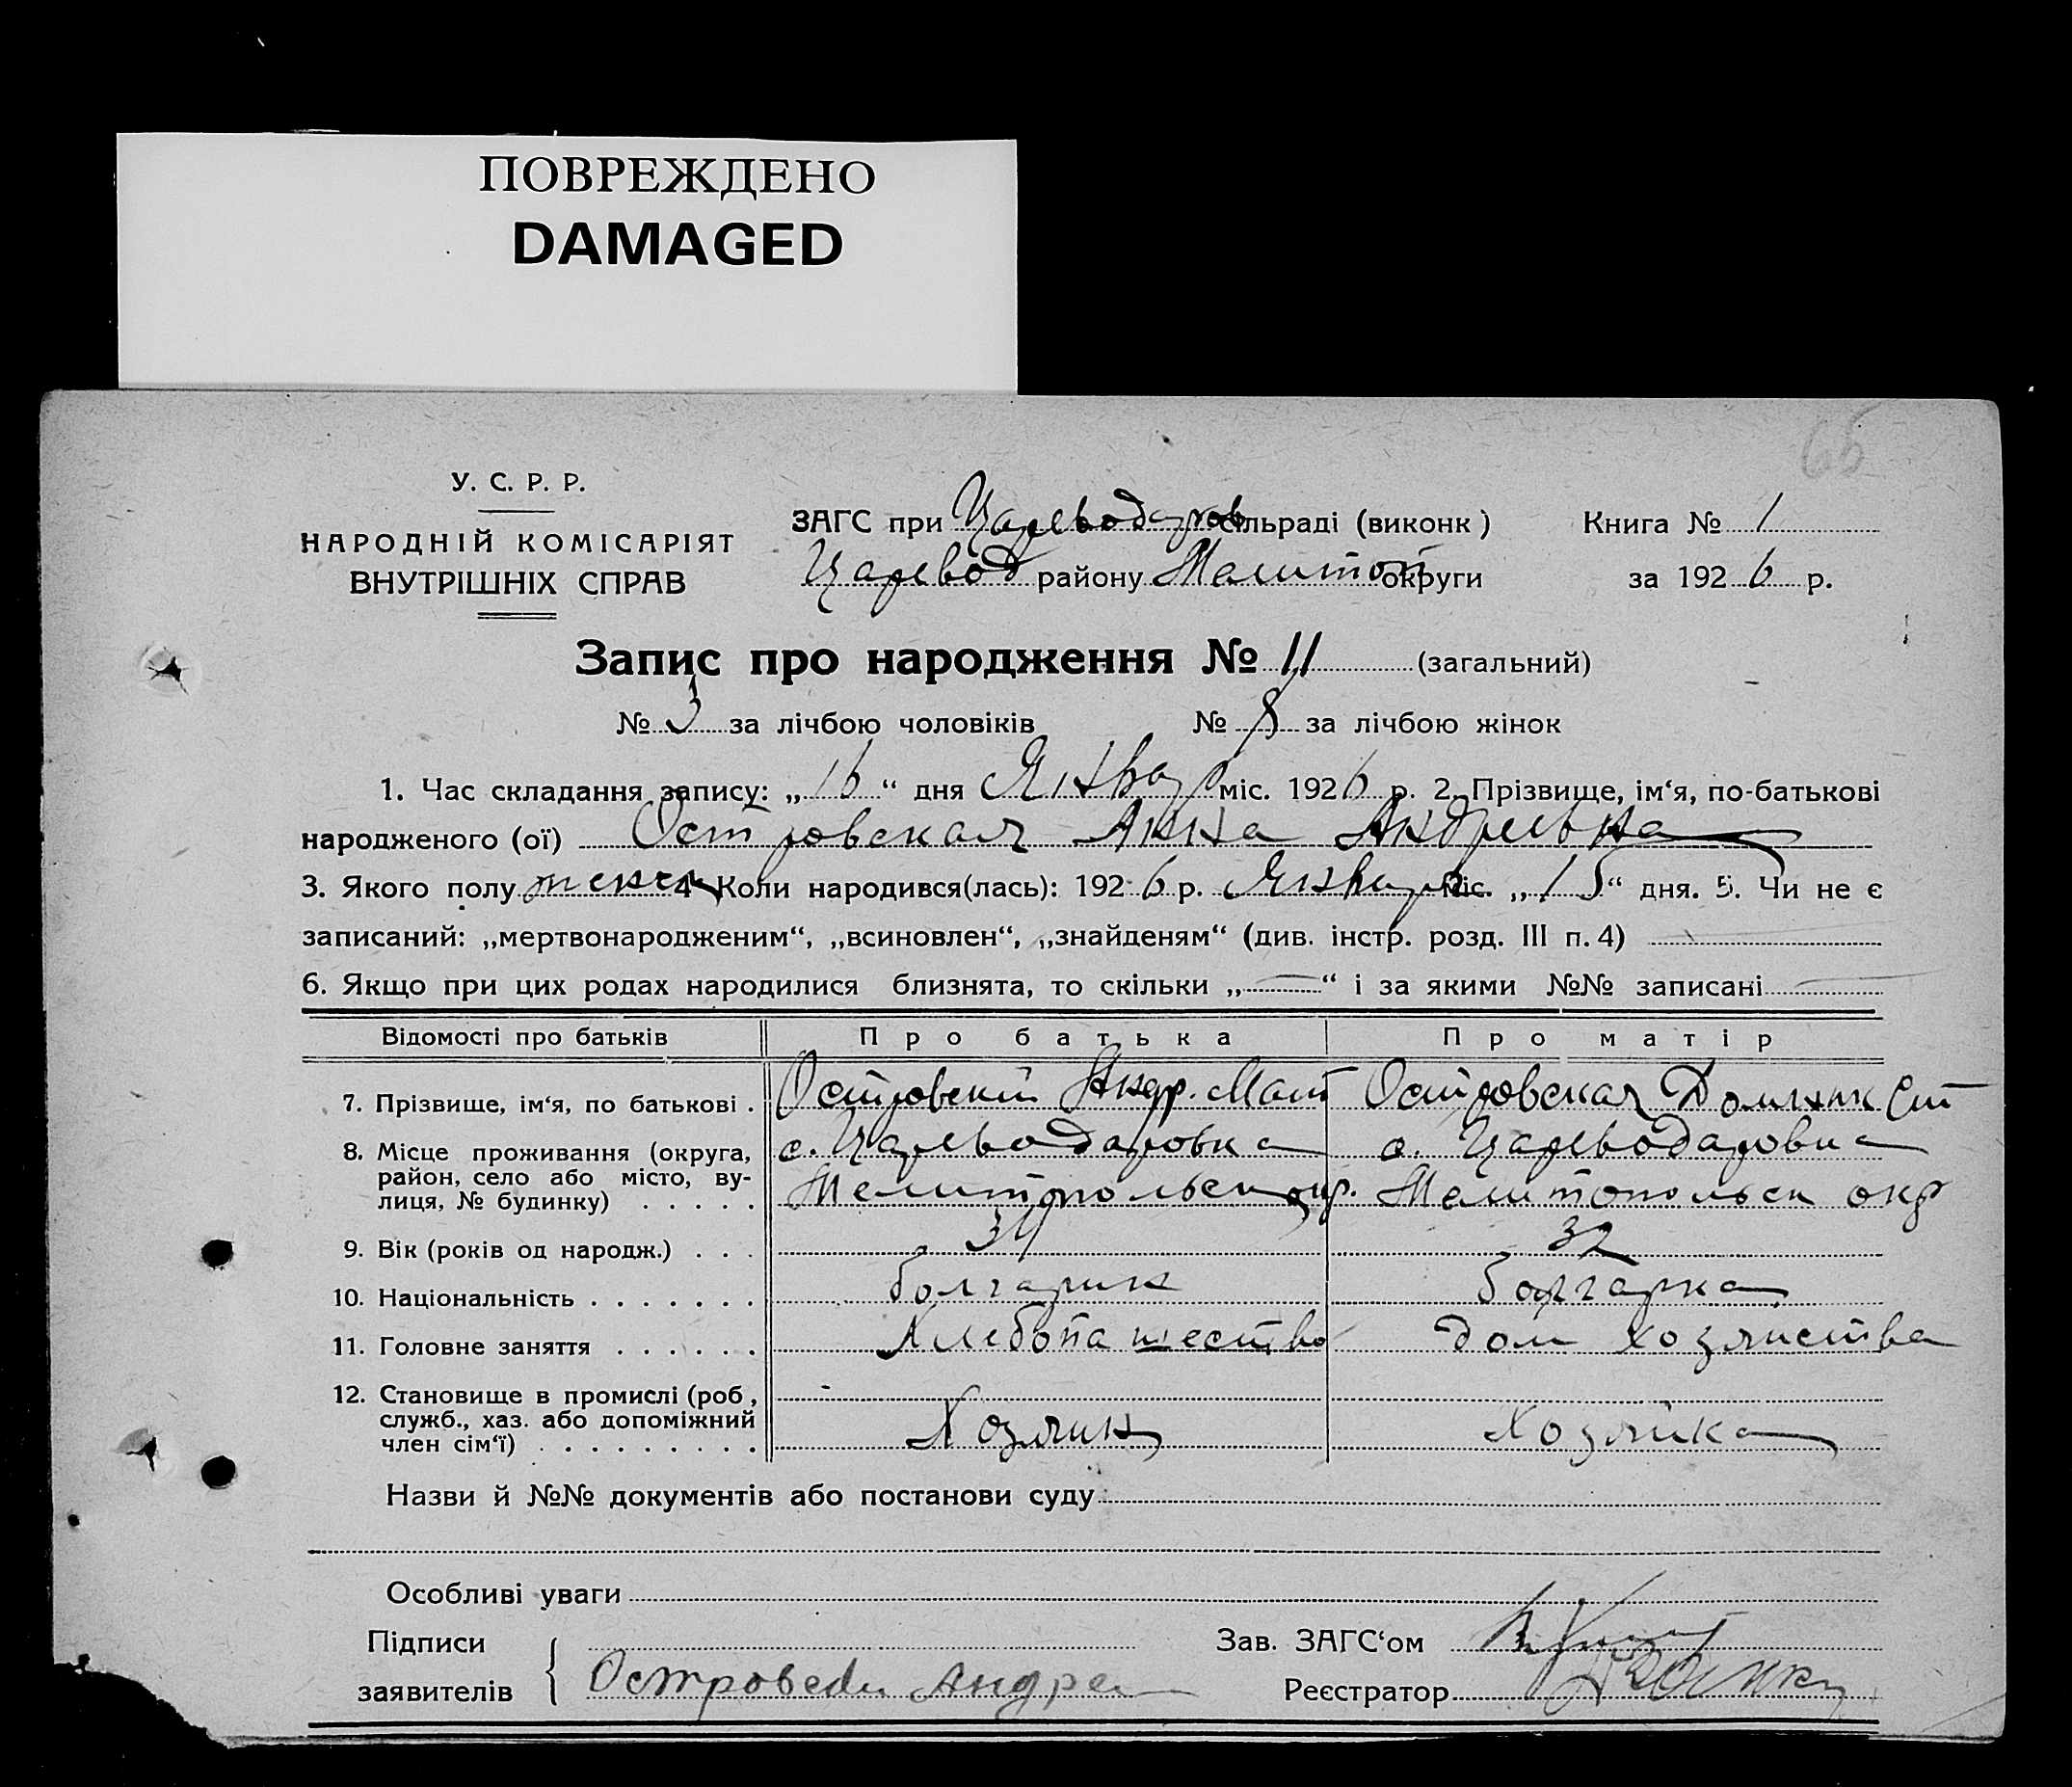 ПОВРЕЖДЕНО
DAMAGED
66
У. С. Р. Р.
НАРОДНІЙ КОМІСАРІЯТ
ВНУТРІШНІХ СПРАВ
ЗАГС при Цареводаров сільраді (виконк)
Царевод району Мелитоп округи
Книга № 1
за 1926 р.
Запис про народження № 11 (загальний)
№ 3 за лічбою чоловіків № 8 за лічбою жінок
1. Час складання запису: „16“ дня Январ міс. 1926 р. 2. Прізвище, ім‘я, по-батькові
народженого (ої) Островская Анна Андреевна
3. Якого полу женск 4 Коли народився(лась): 1926 р. Января міс. „15“ дня. 5. Чи не є
записаний: „мертвонародженим“, „всиновлен“, „знайденям“ (див. інстр. розд. III п. 4)
6. Якщо при цих родах народилися близнята, то скільки „—“ і за якими №№ записані —
Відомості про батьків Про батька Про матір
7. Прізвище, ім‘я, по батькові . Островский Андр. Мат Островская Домник Ст
8. Місце проживання (округа, с. Цареводаровка с. Цареводаровка
район, село або місто, ву-
лиця, № будинку) . . . . . Мелитопольск окр. Мелитопольск окр
9. Вік (років од народж.) . . . 34 32
10. Національність . . . . . . . болгарин болгарка
11. Головне заняття . . . . . . Хлебопашество дом хозяйства
12. Становище в промислі (роб,
служб., хаз. або допоміжний
член сім‘ї) . . . . . . . . . Хозяин Хозяйка
Назви й №№ документів або постанови суду
Особливі уваги
Підписи
заявителів Островски Андре
Зав. ЗАГС‘ом
Реєстратор